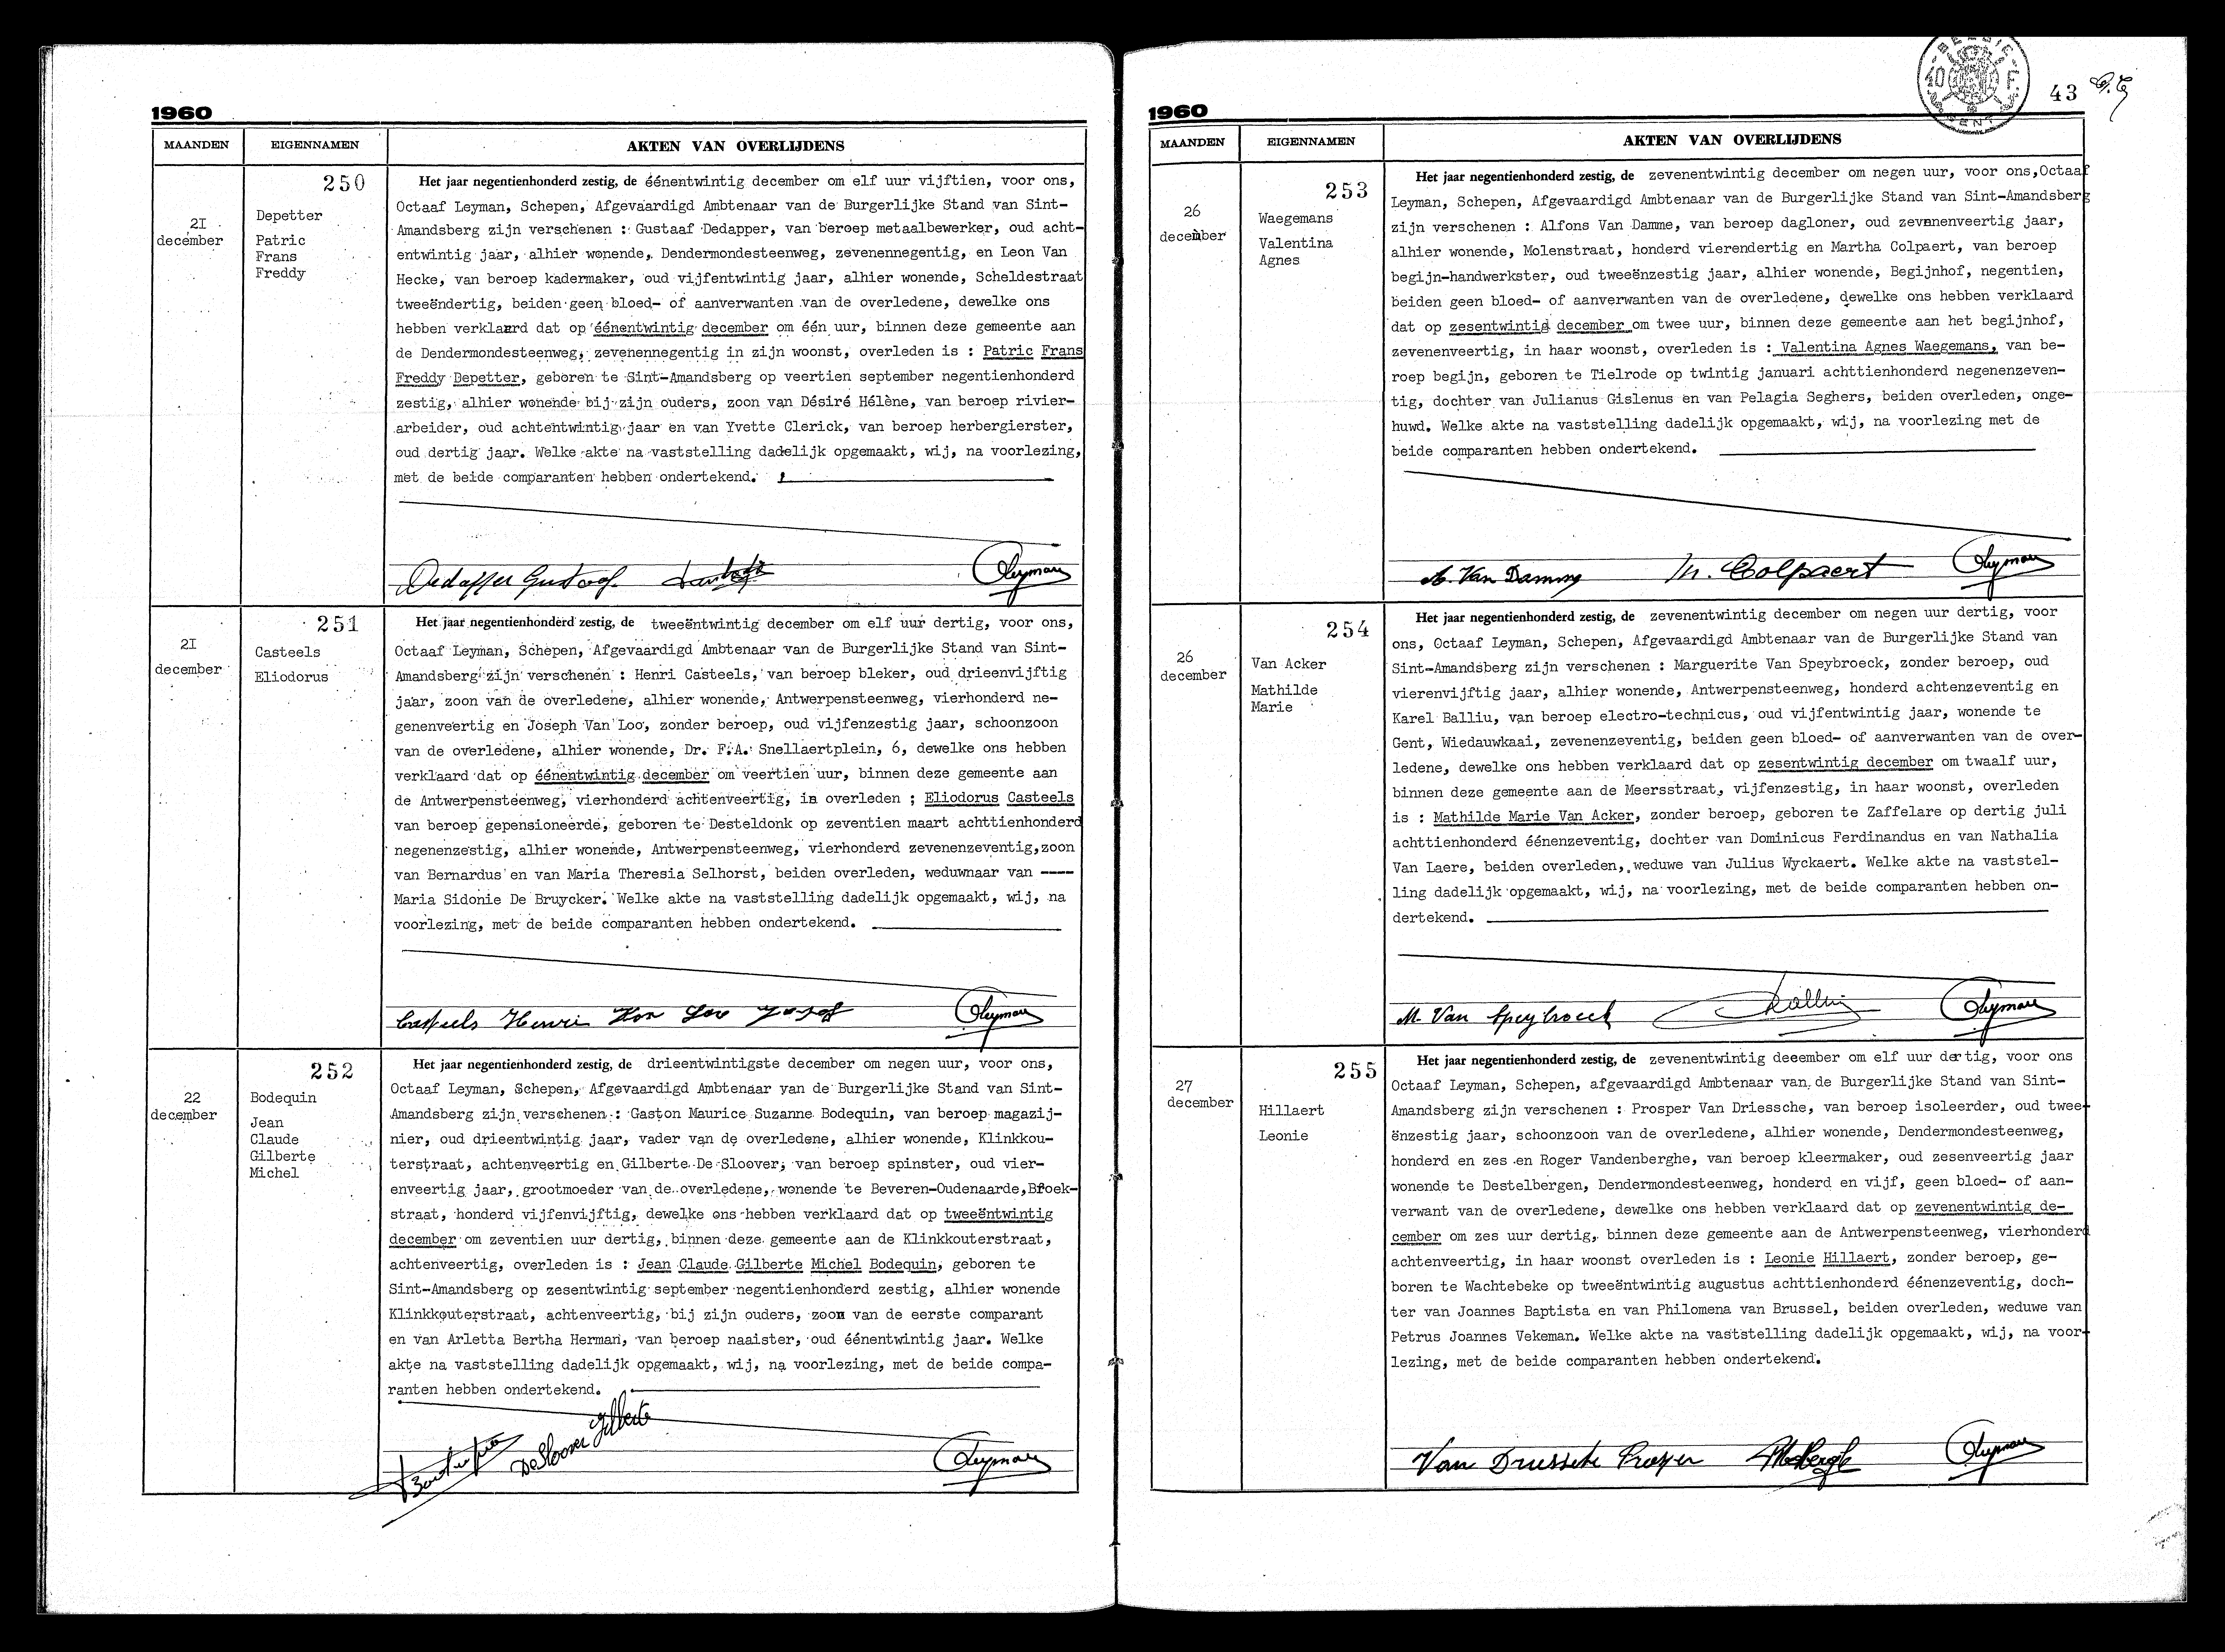 1960
MAANDEN EIGENNAMEN AKTEN VAN OVERLIJDENS
250
21
december
Depetter
Patric
Frans
Freddy
Het jaar negentienhonderd zestig, de éénentwintig december om elf uur vijftien, voor ons,
Octaaf Leyman, Schepen, Afgevaardigd Ambtenaar van de Burgerlijke Stand van Sint-
Amandsberg zijn verschenen : Gustaaf Dedapper, van beroep metaalbewerker, oud acht-
entwintig jaar, alhier wonende, Dendermondesteenweg, zevenennegentig, en Leon Van
Hecke, van beroep kadermaker, oud vijfentwintig jaar, alhier wonende, Scheldestraat
tweeëndertig, beiden geen bloed- of aanverwanten van de overledene, dewelke ons
hebben verklaard dat op éénentwintig december om één uur, binnen deze gemeente aan
de Dendermondesteenweg, zevenennegentig in zijn woonst, overleden is : Patric Frans
Freddy Depetter, geboren te Sint-Amandsberg op veertien september negentienhonderd
zestig, alhier wonende bij zijn ouders, zoon van Désiré Hélène, van beroep rivier-
arbeider, oud achtentwintig jaar en van Yvette Clerick, van beroep herbergierster,
oud dertig jaar. Welke akte na vaststelling dadelijk opgemaakt, wij, na voorlezing,
met de beide comparanten hebben ondertekend.
Dedapper Gustaaf OLeyman
251
21
december
Casteels
Eliodorus
Het jaar negentienhonderd zestig, de tweeëntwintig december om elf uur dertig, voor ons,
Octaaf Leyman, Schepen, Afgevaardigd Ambtenaar van de Burgerlijke Stand van Sint-
Amandsberg zijn verschenen : Henri Casteels, van beroep bleker, oud drieenvijftig
jaar, zoon van de overledene, alhier wonende, Antwerpensteenweg, vierhonderd ne-
genenveertig en Joseph Van Loo, zonder beroep, oud vijfenzestig jaar, schoonzoon
van de overledene, alhier wonende, Dr. F.A. Snellaertplein, 6, dewelke ons hebben
verklaard dat op éénentwintig december om veertien uur, binnen deze gemeente aan
de Antwerpensteenweg, vierhonderd achtenveertig, is overleden ; Eliodorus Casteels
van beroep gepensioneerde, geboren te Desteldonk op zeventien maart achttienhonderd
negenenzestig, alhier wonende, Antwerpensteenweg, vierhonderd zevenenzeventig,zoon
van Bernardus en van Maria Theresia Selhorst, beiden overleden, weduwnaar van ----
Maria Sidonie De Bruycker. Welke akte na vaststelling dadelijk opgemaakt, wij, na
voorlezing, met de beide comparanten hebben ondertekend.
Casteels Henri Van Loo Josef OLeyman
252
22
december
Bodequin
Jean
Claude
Gilberte
Michel
Het jaar negentienhonderd zestig, de drieentwintigste december om negen uur, voor ons,
Octaaf Leyman, Schepen, Afgevaardigd Ambtenaar van de Burgerlijke Stand van Sint-
Amandsberg zijn verschenen : Gaston Maurice Suzanne Bodequin, van beroep magazij-
nier, oud drieentwintig jaar, vader van de overledene, alhier wonende, Klinkkou-
terstraat, achtenveertig en Gilberte De Sloover, van beroep spinster, oud vier-
enveertig jaar, grootmoeder van de overledene, wonende te Beveren-Oudenaarde,Broek-
straat, honderd vijfenvijftig, dewelke ons hebben verklaard dat op tweeëntwintig
december om zeventien uur dertig, binnen deze gemeente aan de Klinkkouterstraat,
achtenveertig, overleden is : Jean Claude Gilberte Michel Bodequin, geboren te
Sint-Amandsberg op zesentwintig september negentienhonderd zestig, alhier wonende
Klinkkouterstraat, achtenveertig, bij zijn ouders, zoon van de eerste comparant
en van Arletta Bertha Herman, van beroep naaister, oud éénentwintig jaar. Welke
akte na vaststelling dadelijk opgemaakt, wij, na voorlezing, met de beide compa-
ranten hebben ondertekend.
De Sloover Gilberte OLeyman
BELGIE 10 F. GENT
43
1960
MAANDEN EIGENNAMEN AKTEN VAN OVERLIJDENS
253
26
december
Waegemans
Valentina
Agnes
Het jaar negentienhonderd zestig, de zevenentwintig december om negen uur, voor ons,Octaaf
Leyman, Schepen, Afgevaardigd Ambtenaar van de Burgerlijke Stand van Sint-Amandsberg
zijn verschenen : Alfons Van Damme, van beroep dagloner, oud zevenenveertig jaar,
alhier wonende, Molenstraat, honderd vierendertig en Martha Colpaert, van beroep
begijn-handwerkster, oud tweeënzestig jaar, alhier wonende, Begijnhof, negentien,
beiden geen bloed- of aanverwanten van de overledene, dewelke ons hebben verklaard
dat op zesentwintig december om twee uur, binnen deze gemeente aan het begijnhof,
zevenenveertig, in haar woonst, overleden is : Valentina Agnes Waegemans, van be-
roep begijn, geboren te Tielrode op twintig januari achttienhonderd negenenzeven-
tig, dochter van Julianus Gislenus en van Pelagia Seghers, beiden overleden, onge-
huwd. Welke akte na vaststelling dadelijk opgemaakt, wij, na voorlezing met de
beide comparanten hebben ondertekend.
A. Van Damme M. Colpaert OLeyman
254
26
december
Van Acker
Mathilde
Marie
Het jaar negentienhonderd zestig, de zevenentwintig december om negen uur dertig, voor
ons, Octaaf Leyman, Schepen, Afgevaardigd Ambtenaar van de Burgerlijke Stand van
Sint-Amandsberg zijn verschenen : Marguerite Van Speybroeck, zonder beroep, oud
vierenvijftig jaar, alhier wonende, Antwerpensteenweg, honderd achtenzeventig en
Karel Balliu, van beroep electro-technicus, oud vijfentwintig jaar, wonende te
Gent, Wiedauwkaai, zevenenzeventig, beiden geen bloed- of aanverwanten van de over-
ledene, dewelke ons hebben verklaard dat op zesentwintig december om twaalf uur,
binnen deze gemeente aan de Meersstraat, vijfenzestig, in haar woonst, overleden
is : Mathilde Marie Van Acker, zonder beroep, geboren te Zaffelare op dertig juli
achttienhonderd éénenzeventig, dochter van Dominicus Ferdinandus en van Nathalia
Van Laere, beiden overleden, weduwe van Julius Wyckaert. Welke akte na vaststel-
ling dadelijk opgemaakt, wij, na voorlezing, met de beide comparanten hebben on-
dertekend.
M. Van Speybroeck Balliu OLeyman
255
27
december
Hillaert
Leonie
Het jaar negentienhonderd zestig, de zevenentwintig december om elf uur dertig, voor ons
Octaaf Leyman, Schepen, afgevaardigd Ambtenaar van de Burgerlijke Stand van Sint-
Amandsberg zijn verschenen : Prosper Van Driessche, van beroep isoleerder, oud twee-
ënzestig jaar, schoonzoon van de overledene, alhier wonende, Dendermondesteenweg,
honderd en zes en Roger Vandenberghe, van beroep kleermaker, oud zesenveertig jaar
wonende te Destelbergen, Dendermondesteenweg, honderd en vijf, geen bloed- of aan-
verwant van de overledene, dewelke ons hebben verklaard dat op zevenentwintig de-
cember om zes uur dertig, binnen deze gemeente aan de Antwerpensteenweg, vierhonderd
achtenveertig, in haar woonst overleden is : Leonie Hillaert, zonder beroep, ge-
boren te Wachtebeke op tweeëntwintig augustus achttienhonderd éénenzeventig, doch-
ter van Joannes Baptista en van Philomena van Brussel, beiden overleden, weduwe van
Petrus Joannes Vekeman. Welke akte na vaststelling dadelijk opgemaakt, wij, na voor-
lezing, met de beide comparanten hebben ondertekend.
Van Driessche Prosper OLeyman